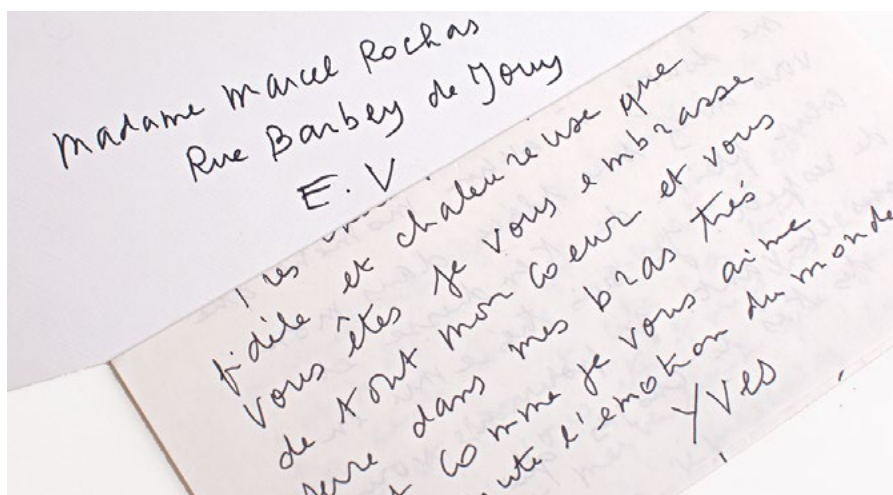 Madame Marcel Rochas
Rue Barbey de Jouy
E. V
fidèle et chaleureuse que
vous êtes je vous embrasse
de tout mon coeur et vous
serre dans mes bras très
comme je vous aime
l'emotion du monde
Yves